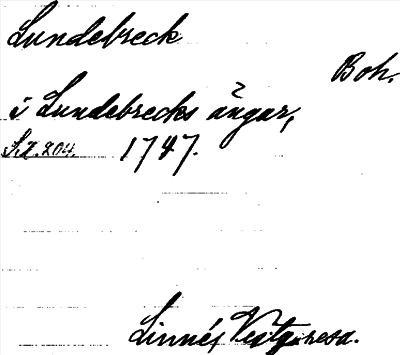 Lundebreck
Boh.
i Lundebrecks ängar,
S.I.204. 1747.
Linnés Vestgöresa.